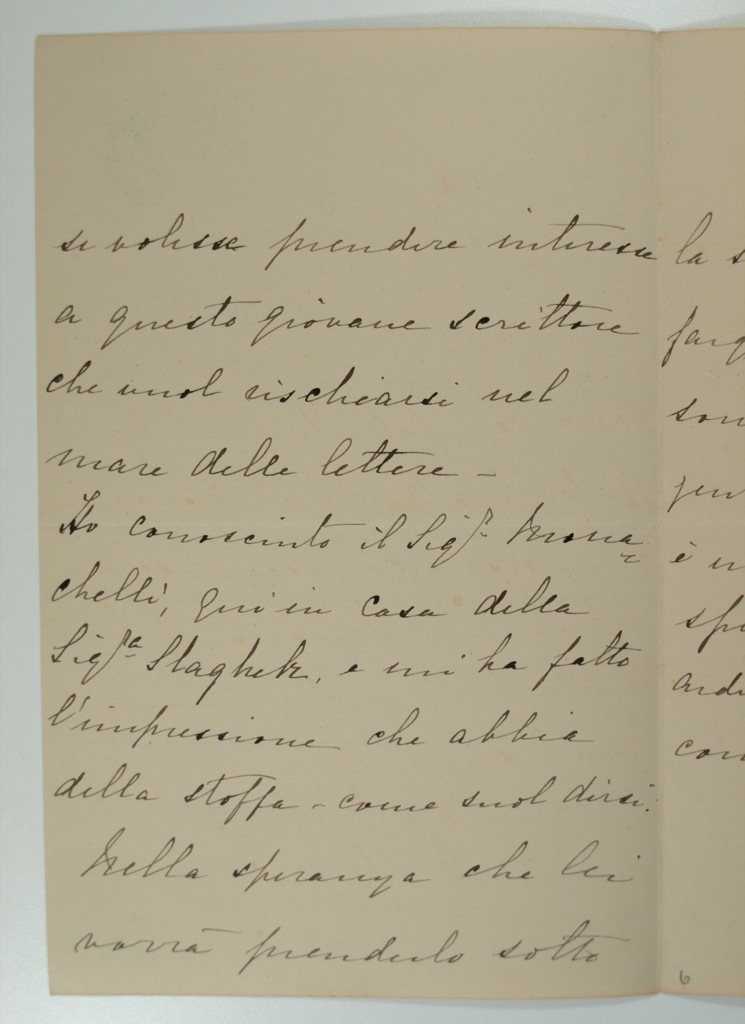 se volesse prendere interesse
a questo giovane scrittore
che vuol rischiarsi nel
mare delle lettere –
Ho conosciuto il Sigr. Mona=
chelli, qui in casa della
Sigra, e mi ha fatto
l'impressione che abbia
della stoffa – come suol dirsi.
Nella speranza che lei
vorrà prenderlo sotto
la s
farg
son
è u
ardi
con
6